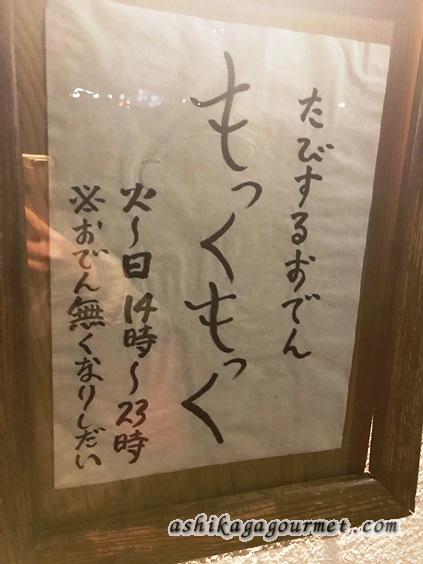 たびするおでん
もっくもっく
火〜日 14時〜23時
※おでん無くなりしだい
ashikagagourmet.com